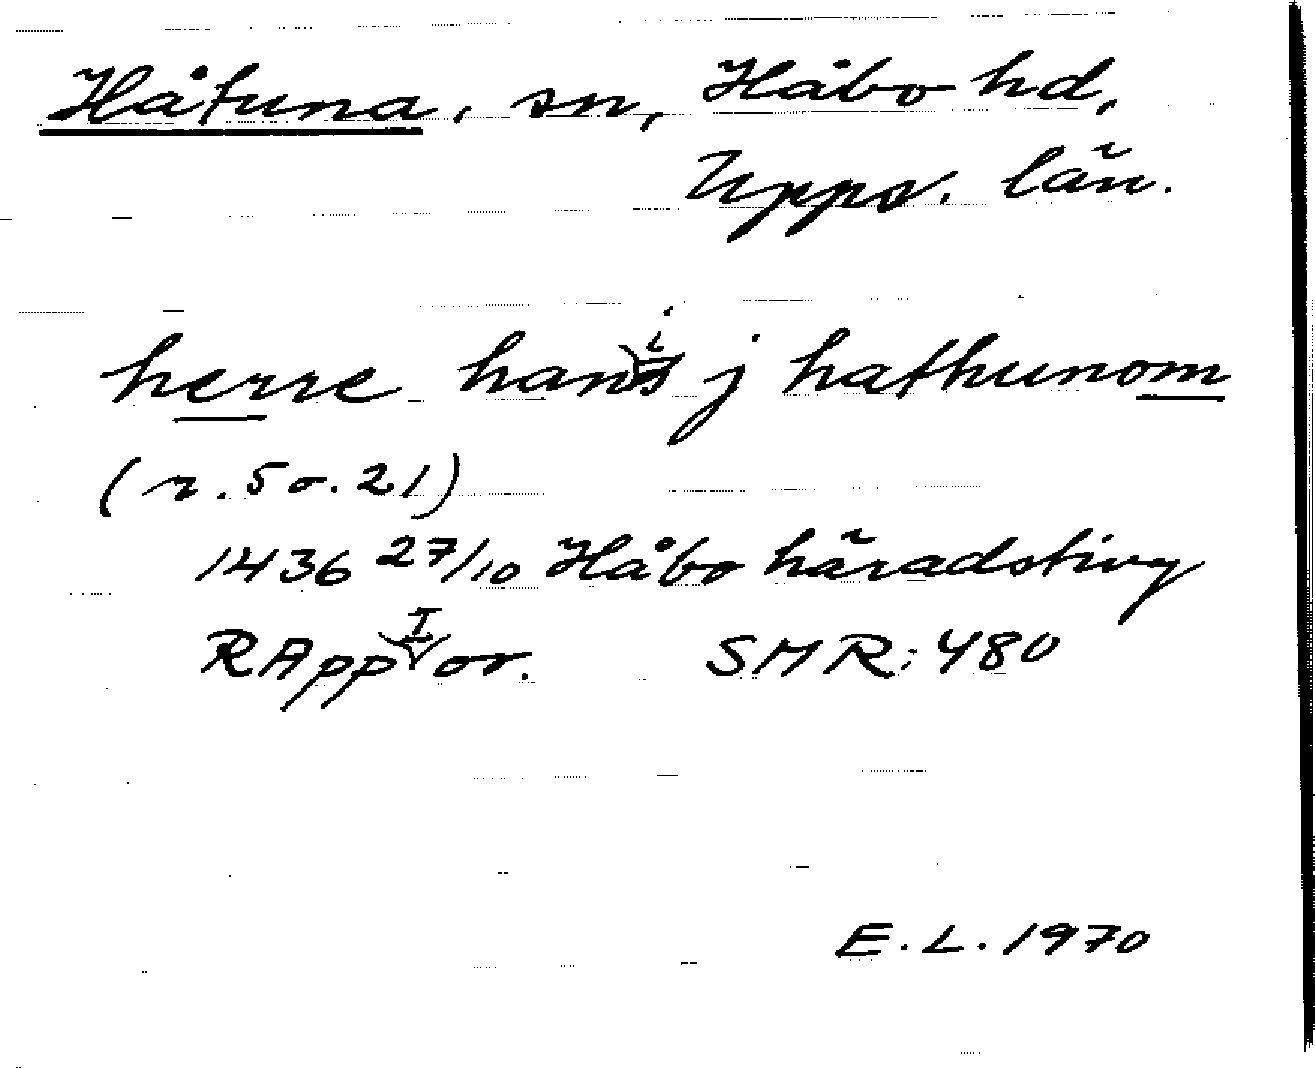 Håtuna, sn, Håbo hd,
Upps. län.
herre hans j hathunom
(r. 5 o. 21)
1436 27/10 Håbo häradsting
RApp I or. SMR: 480
E. L. 1970